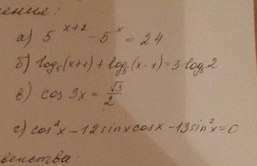 а) 5^(x+2) - 5^x = 24
б) log₅(x+1) + log₅(x-1) = 3 log₅2
в) cos 3x = √3/2
с) cos²x - 12 sinx cosx - 13 sin²x = 0